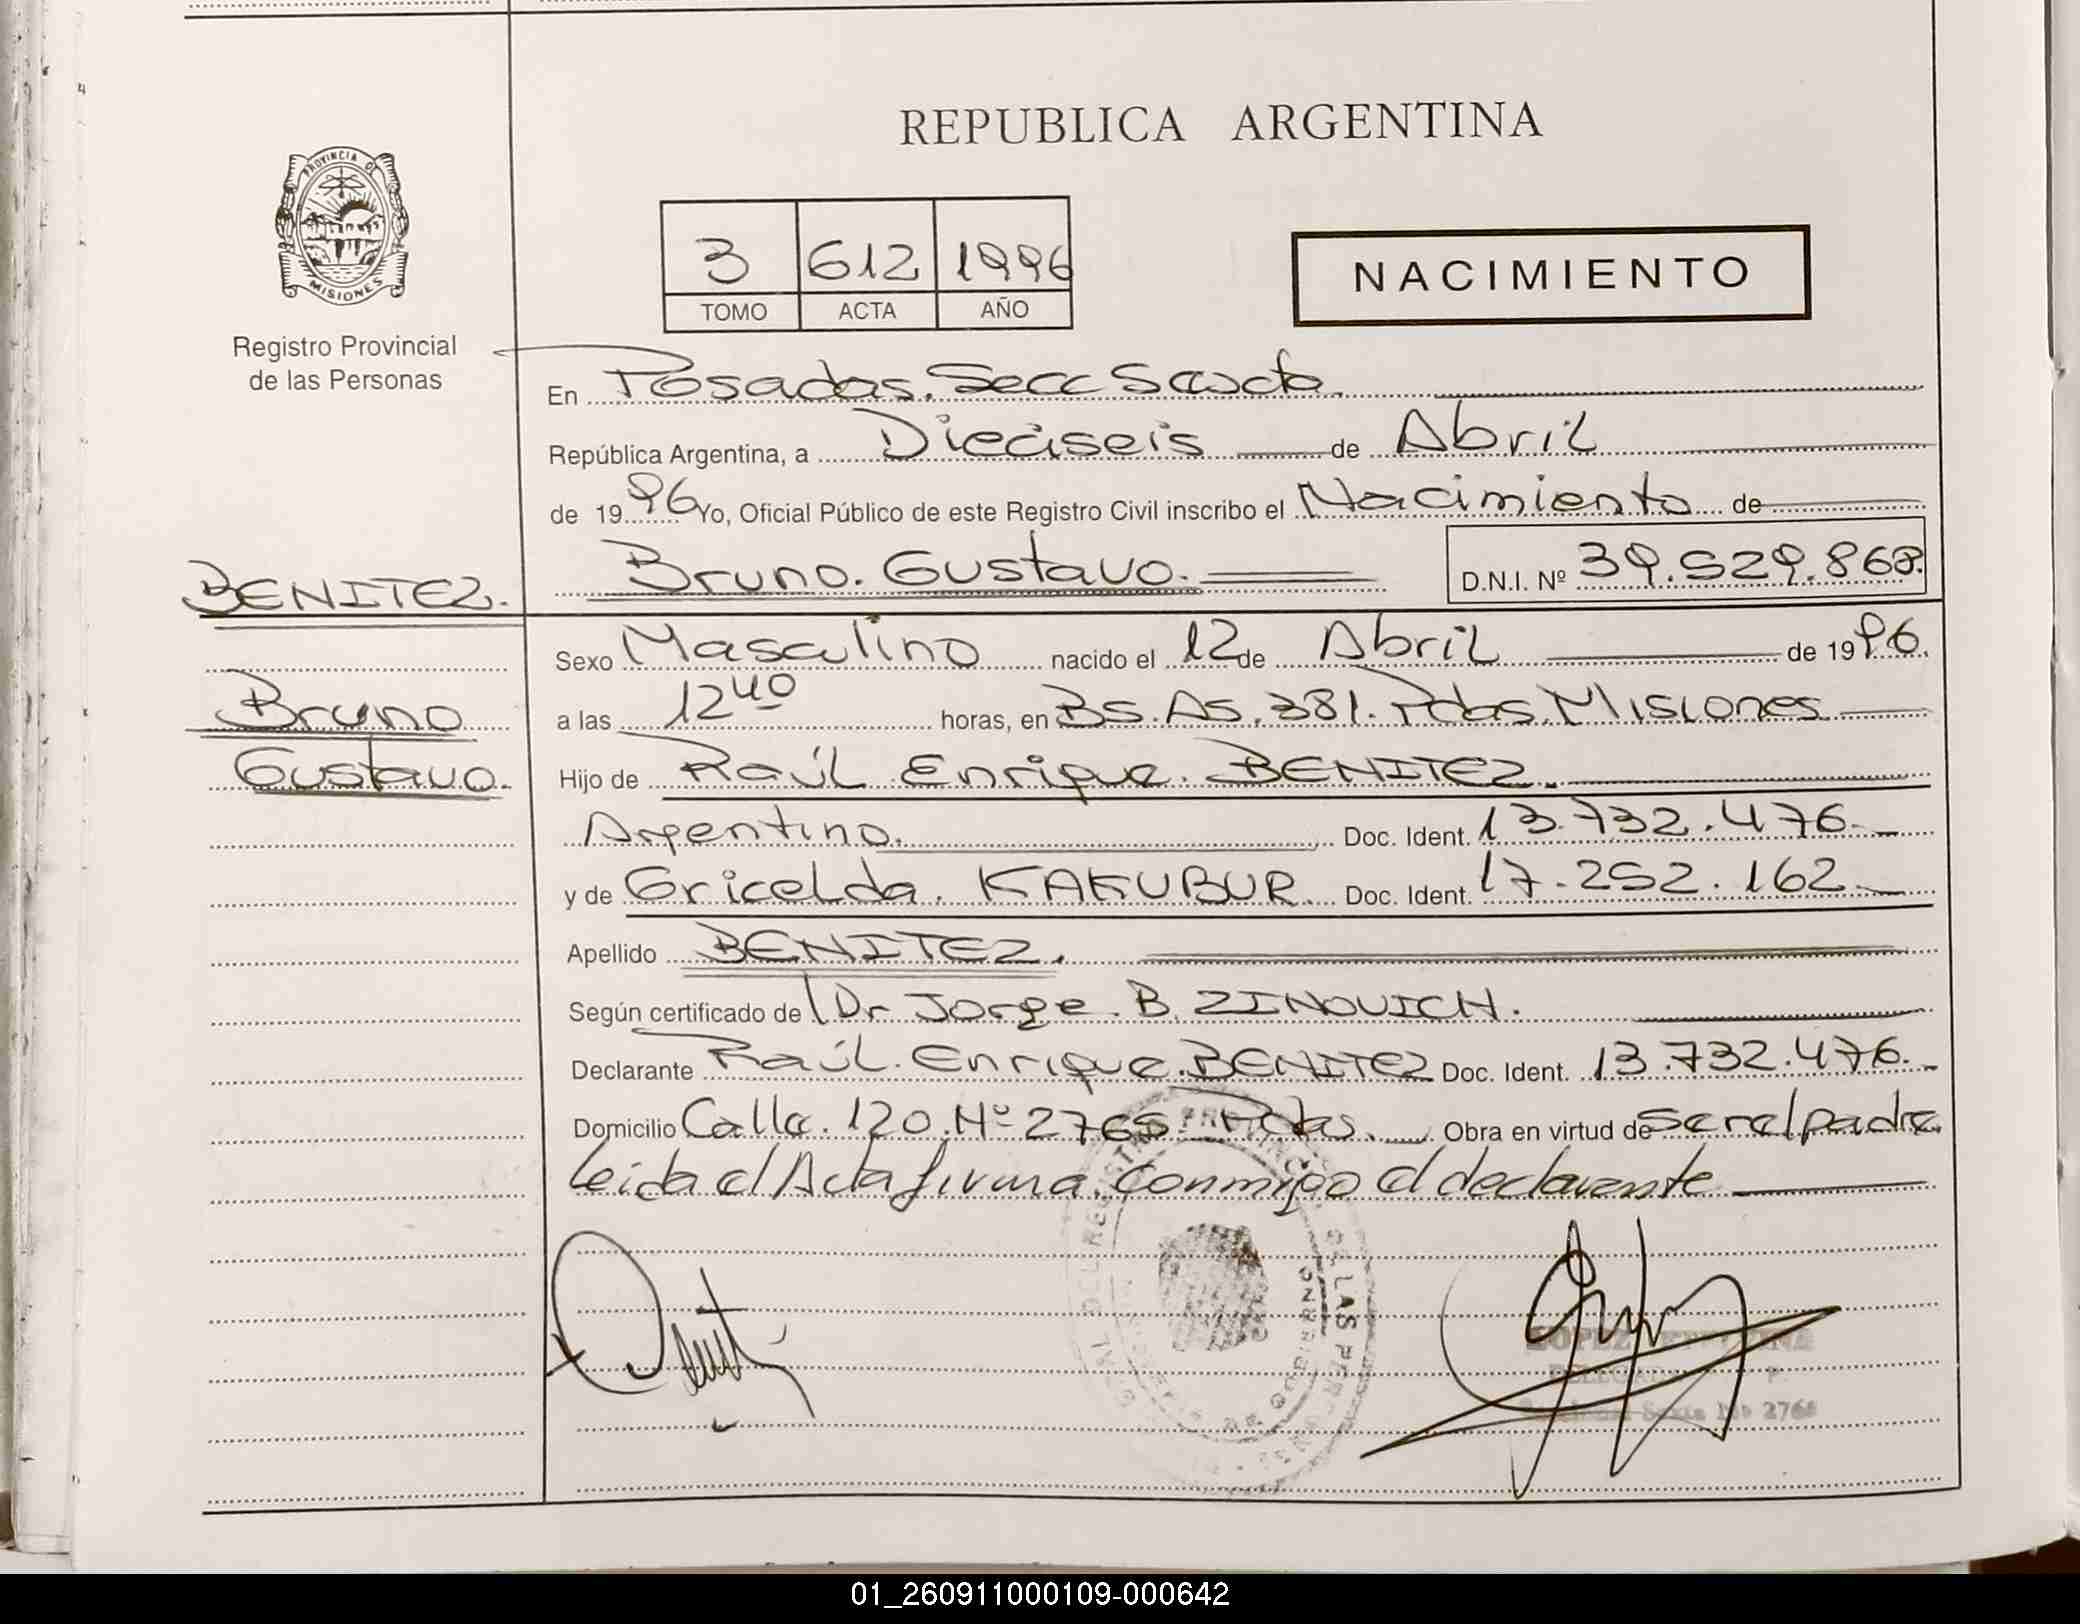 REPUBLICA ARGENTINA
PROVINCIA DE
MISIONES
Registro Provincial
de las Personas
3 612 1996
TOMO ACTA AÑO
NACIMIENTO
En Posadas. Secc Sexta.
República Argentina, a Dieciseis de Abril
de 1996 Yo, Oficial Público de este Registro Civil inscribo el Nacimiento de
Bruno. Gustavo. D.N.I. Nº 39.529.868.
BENITEZ.
Bruno
Gustavo.
Sexo Masculino nacido el 12 de Abril de 1996.
a las 12 40 horas, en Bs. As. 381. Pdas. Misiones
Hijo de Raúl Enrique. BENITEZ.
Argentino. Doc. Ident. 13.732.476.
y de Gricelda. KAKUBUR. Doc. Ident. 17.252.162
Apellido BENITEZ.
Según certificado de Dr Jorge. B. ZINOVICH.
Declarante Raúl. Enrique. BENITEZ Doc. Ident. 13.732.476.
Domicilio Calle. 120. Nº 2765. Pdas. Obra en virtud de ser el padre
Leida el Acta firma conmigo el declarante
01_260911000109-000642